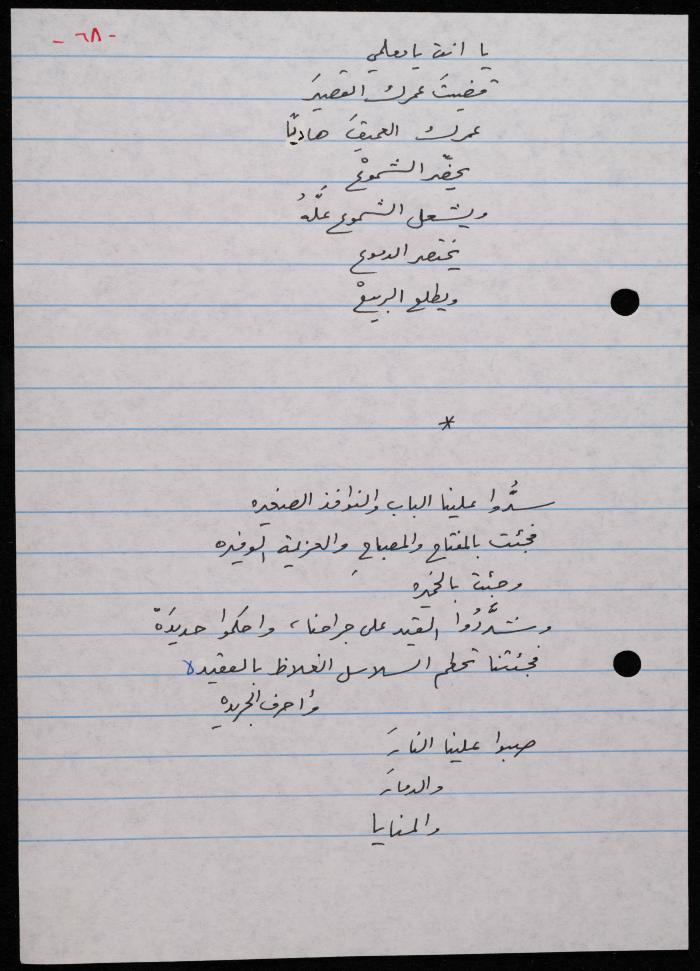 - ٦٨ -
يا انت يا معلمي
قضيتَ عمرك القصيرَ
عمرك العميقَ هاديًا
يحضّر الشموعْ
ويشعل الشموع علَّهُ
يختصر الدموع
ويطلع الربيعْ
*
سدُّوا علينا الباب والنوافذ الصغيره
فجئت بالمفتاح والمصباحِ والعزيمة الوفيره
وجئت بالخميره
وشدَّدُوا القيد على جراحنا، واحكموا حديدَهْ
فجئتنا تحطم السلاسل الغلاظ بالعقيده
وأحرف الجريده
صبوا علينا النارَ
والدمارَ
والمنايا